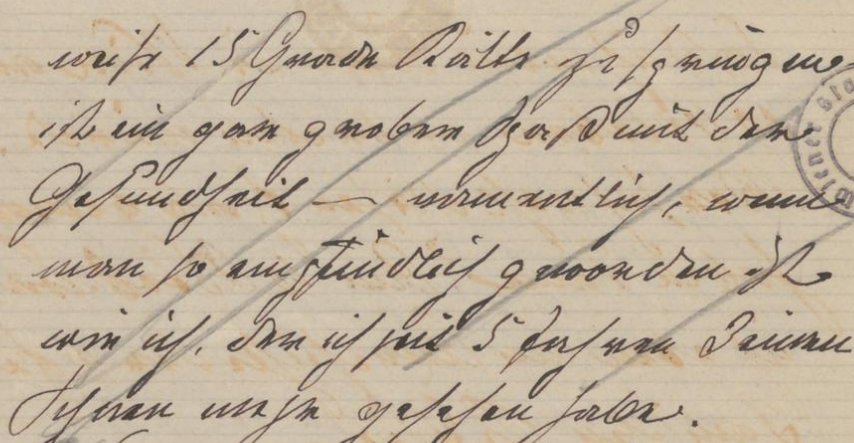 weise 15 Grade Kälte zu springen
ist ein gar grober Spaß mit der
Gesundheit — namentlich, wenn
man so empfindlich geworden ist
wie ich, der ich seit 5 Jahren keinen
Schnee mehr gesehen habe.
Wiener Sta